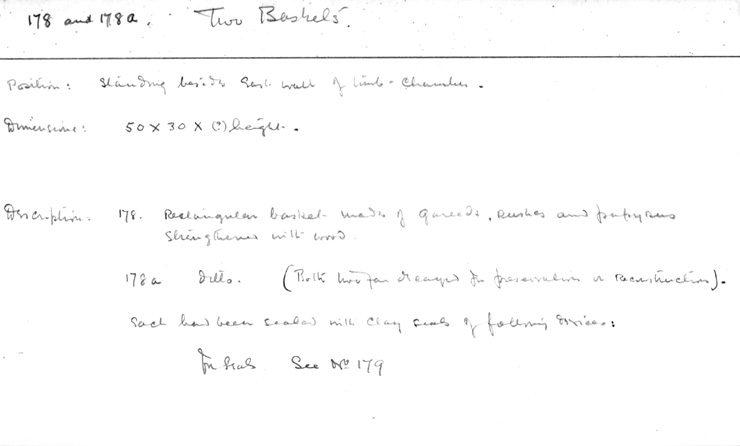 178 and 178a. Two Baskets.
Position: Standing beside East wall of tomb-chamber.
Dimensions: 50 x 30 x (?) height.
Description. 178. Rectangular basket made of reeds, rushes and papyrus
strengthened with wood.
178a ditto. (Both too far decayed for preservation or reconstruction).
Each had been sealed with clay seals of following devices:
For Seals See No 179